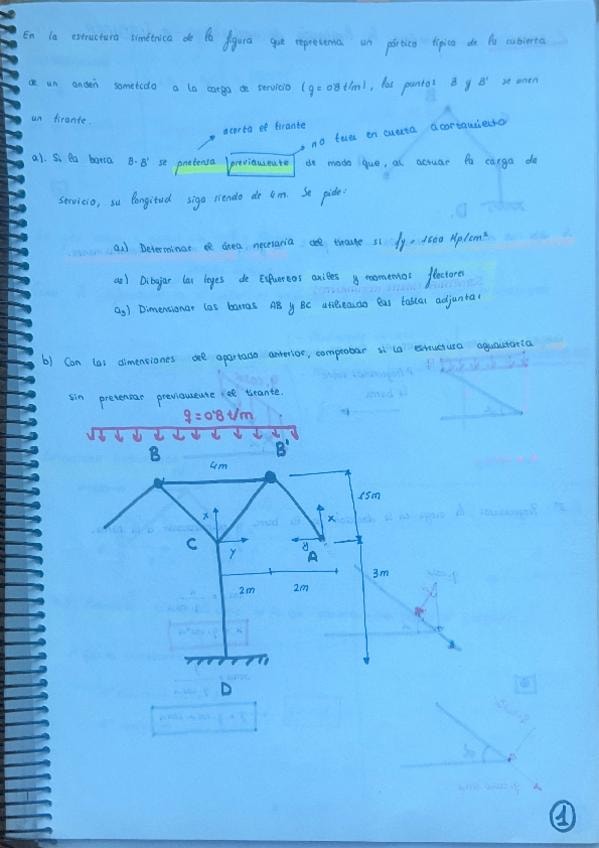 En la estructura simétrica de la figura que representa un pórtico típico de la cubierta
de un andén sometido a la carga de servicio (q = 0'8 t/m), los puntos B y B' se unen
un tirante.
acorta el tirante
no tener en cuenta acortamiento
a). Si la barra B-B' se pretensa previamente de modo que, al actuar la carga de
servicio, su longitud siga siendo de 4 m. Se pide:
a1) Determinar el área necesaria del tirante si fy = 1600 Kp/cm²
a2) Dibujar las leyes de Esfuerzos axiles y momentos flectores
a3) Dimensionar las barras AB y BC utilizando las tablas adjuntas
b) Con las dimensiones del apartado anterior, comprobar si la estructura aguantaría
sin pretensar previamente el tirante.
q = 0'8 t/m
B B'
4m
1'5m
x x
C y y A
3m
2m 2m
D
1